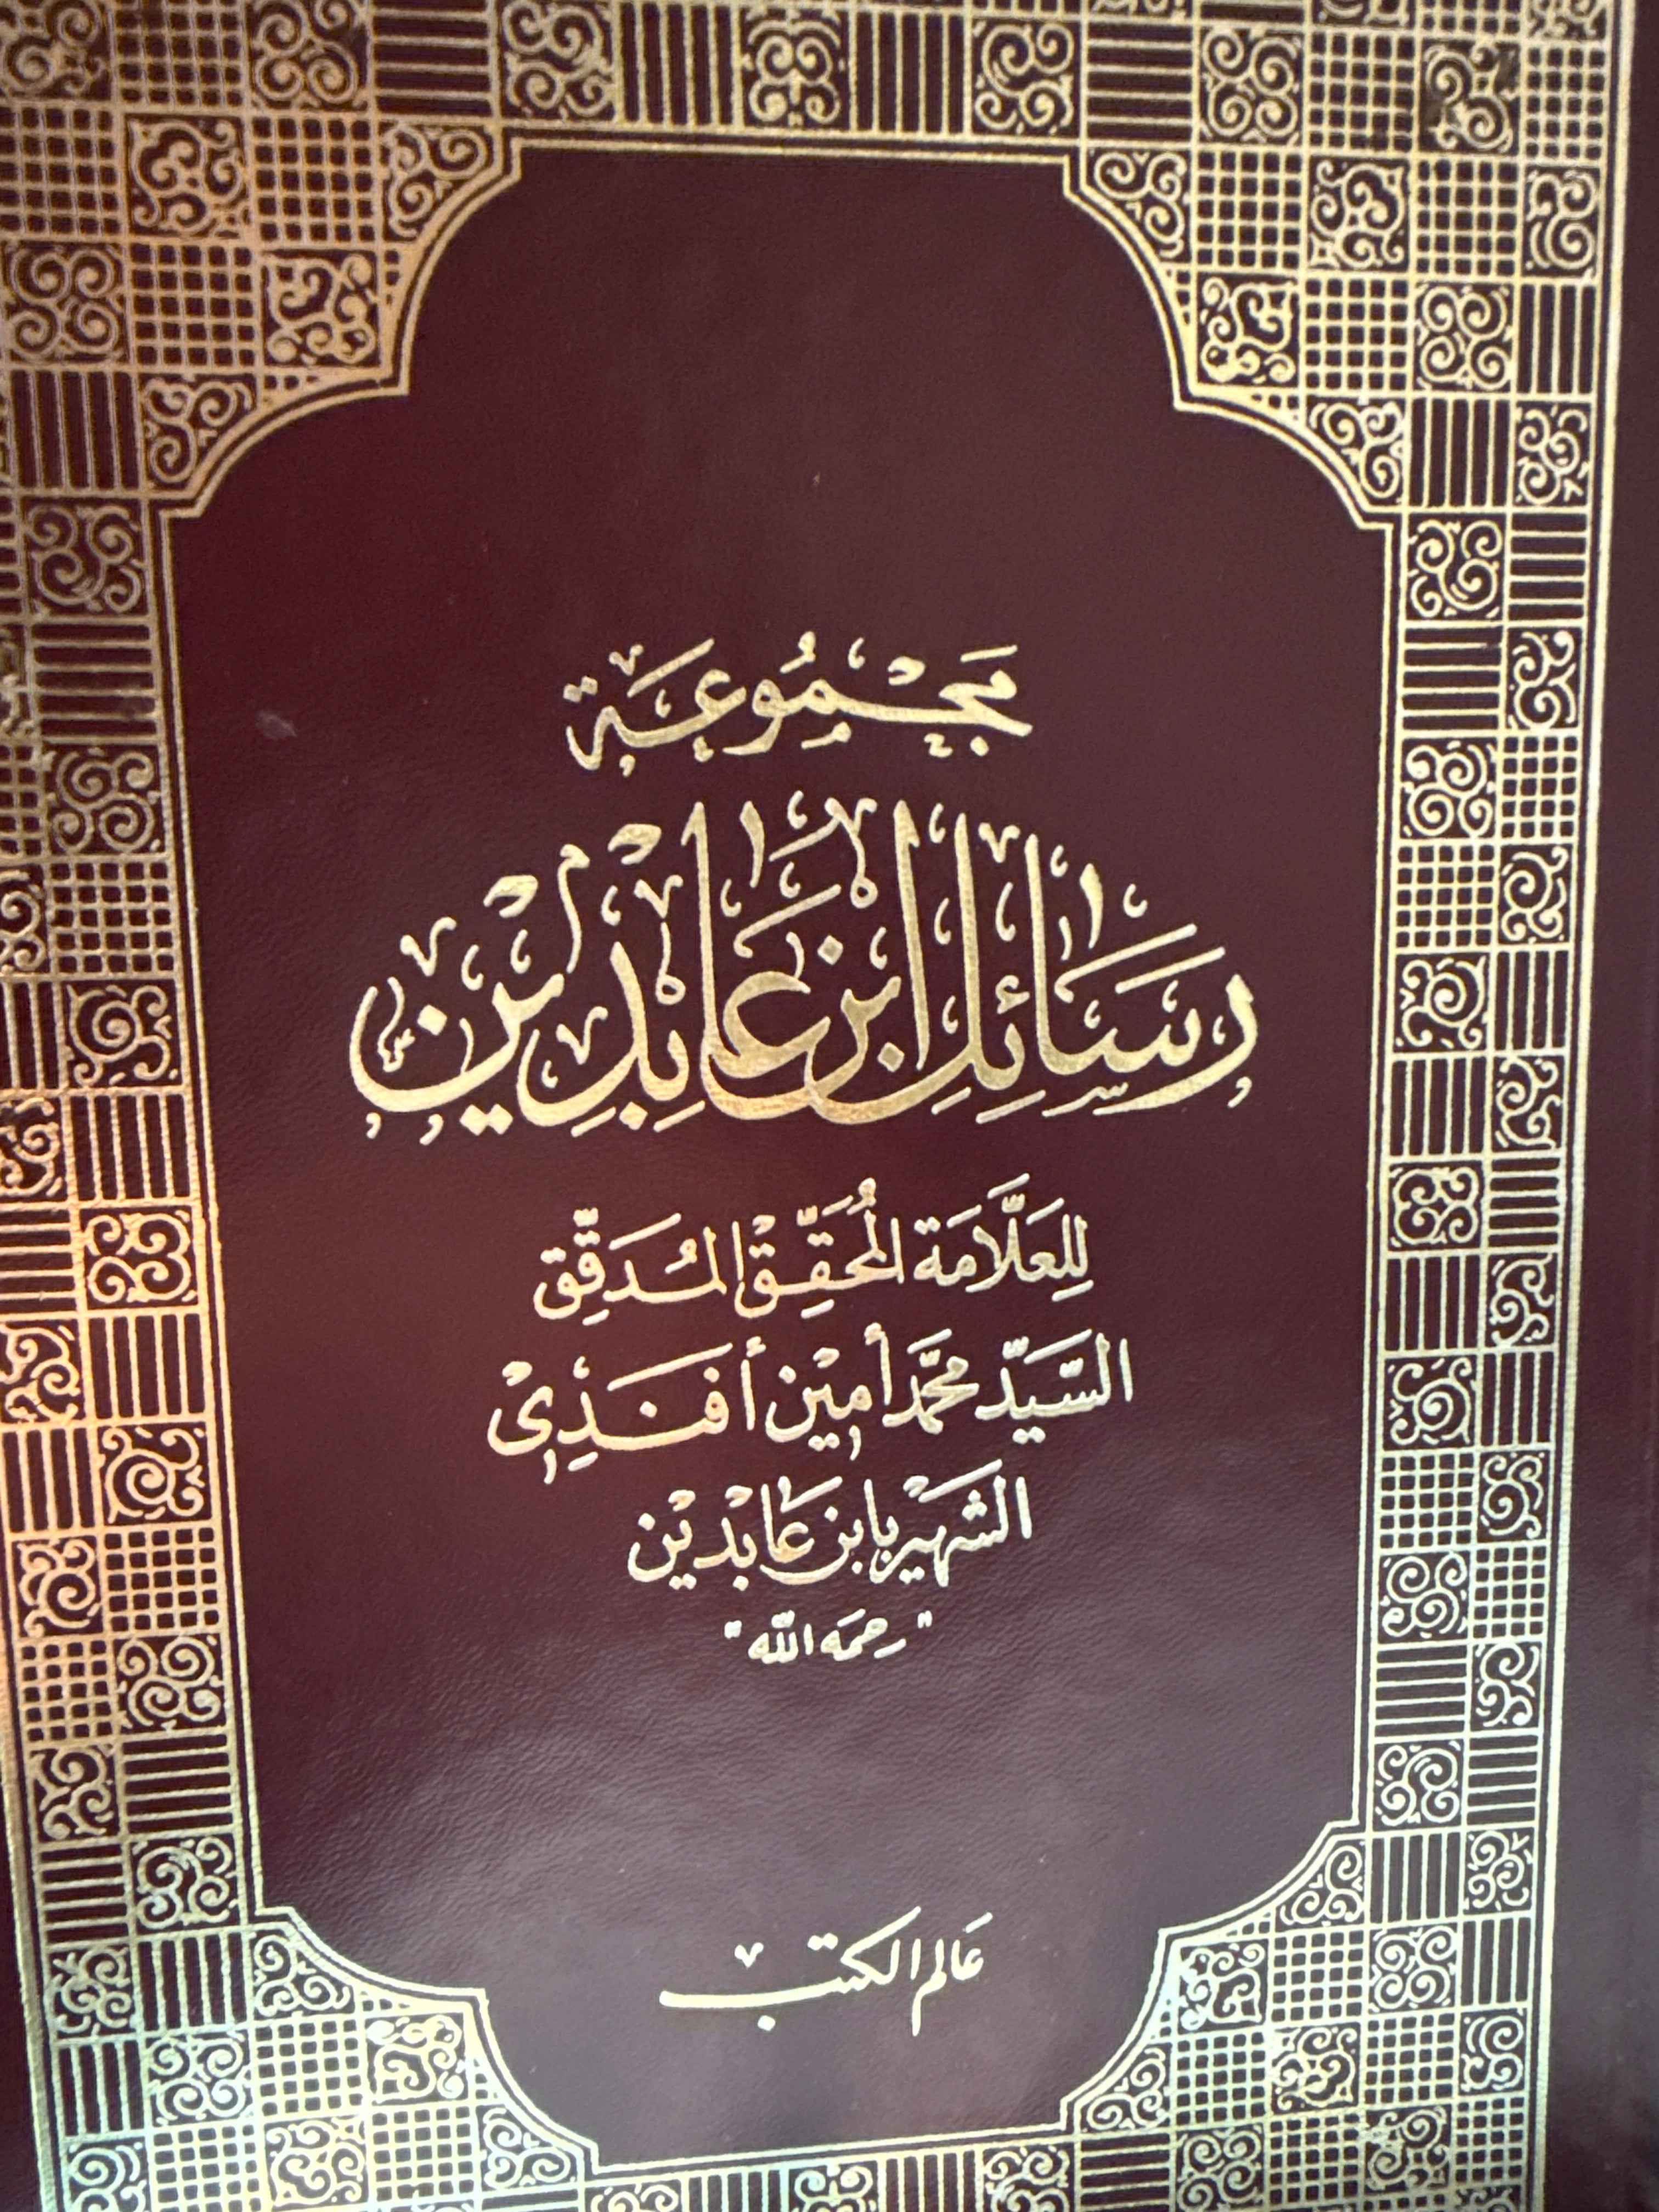 مَجْمُوعَة
رَسَائِل ابْن عَابِدِيْن
لِلعَلَّامَة المُحَقِّقْ المُدَقِّق
السَّيِّد محَمَّد أمِيْن أفَنْدِيْ
الشَّهِيْر بابن عَابْدِيْن
"رحمَه الله"
عَالم الكتب